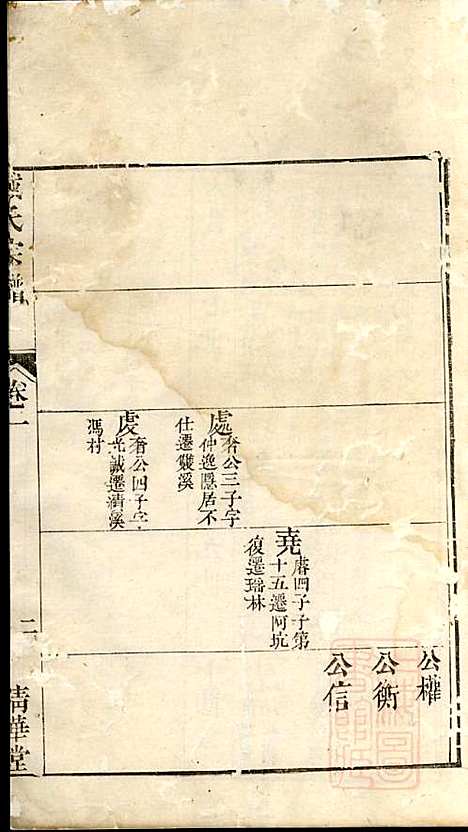 公權
公衡
公信
堯
廥四子子第
十五遷阿坑
復遷瑶林
處
奢公三子字
仲逸隱居不
仕遷雙溪
虔
奢公四子字
光誠遷清溪
馮村
氏宗譜
卷一
二
清華堂